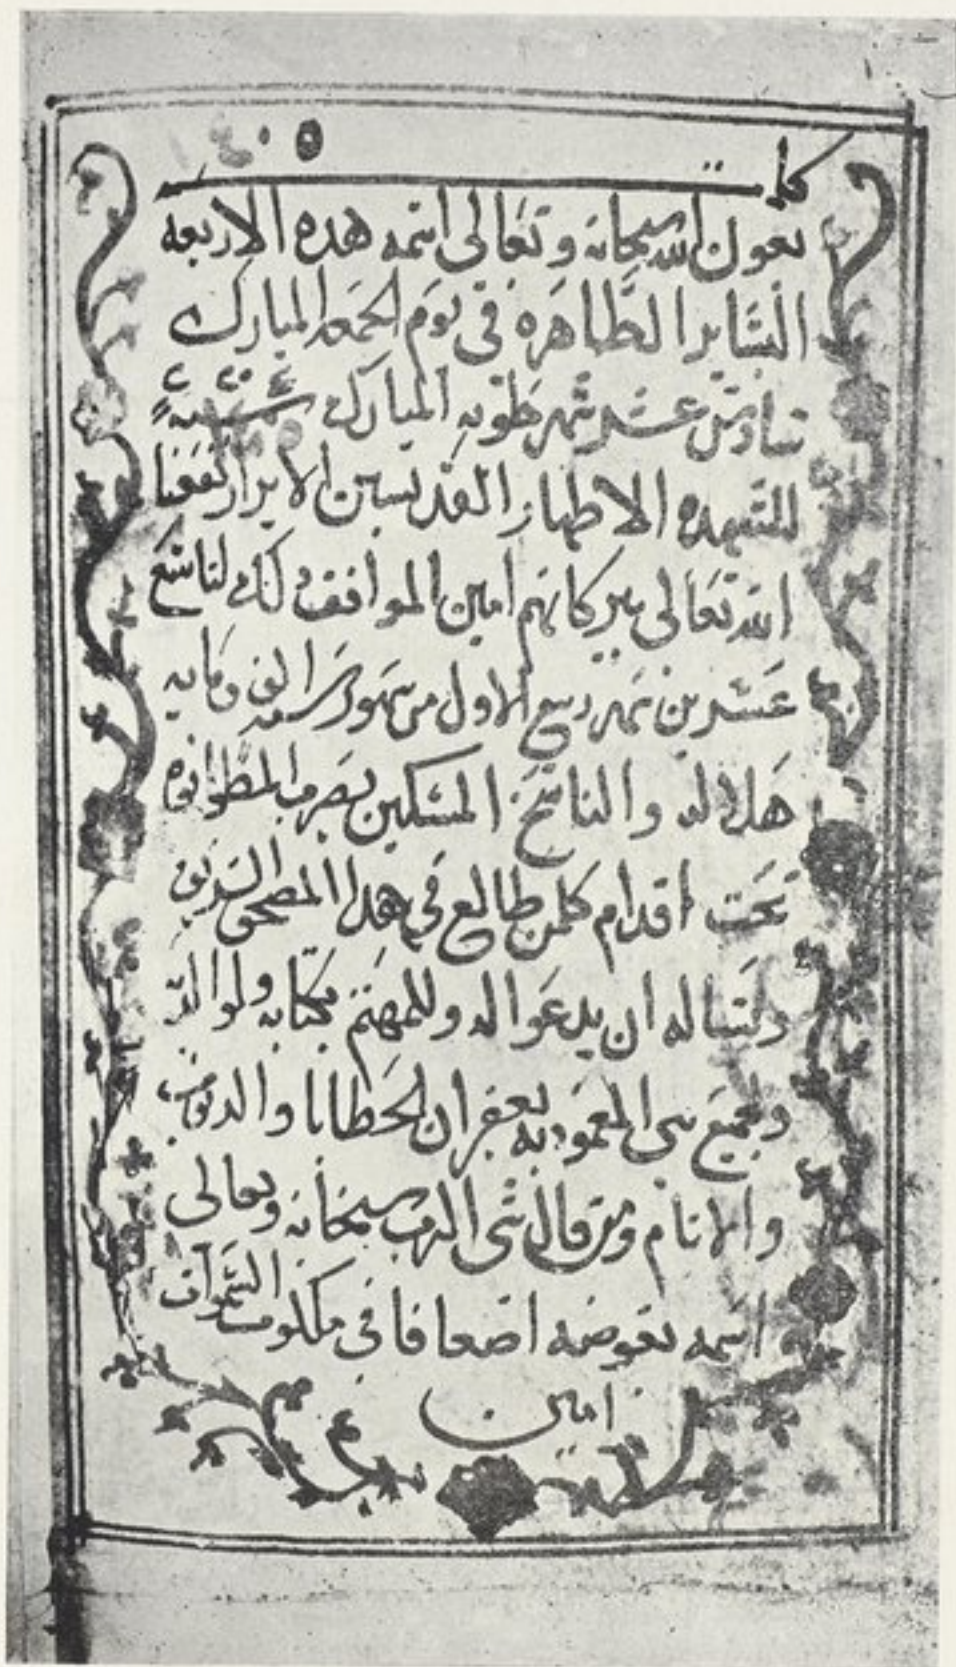 كملت
بعون الله سبحانه وتعالى اتمه هده الاربعه
البشاير الطاهره فى يوم الجمعه المبارك
سادس عشر شهر طوبه المبارك
للشهده الاطهار القديسين الابرار نفعنا
الله تعالى ببركاتهم امين الموافق دلك لتاسع
عشرين شهر ربيع الاول من شهور سنه الف ومايه
هلاليه والناسخ المسكين يضرب المطوانوه
تحت اقدام كلمن طالع في هدا المصحف الشريف
ويساله ان يدعوا له وللمهتم بكتابه ولوالديه
ولجميع بني المعموديه بغفران الخطايا والدنوب
والاتام ومن قال شى الرب سبحانه وتعالى
اسمه يعوضه اضعافا فى ملكوت السموات
امين